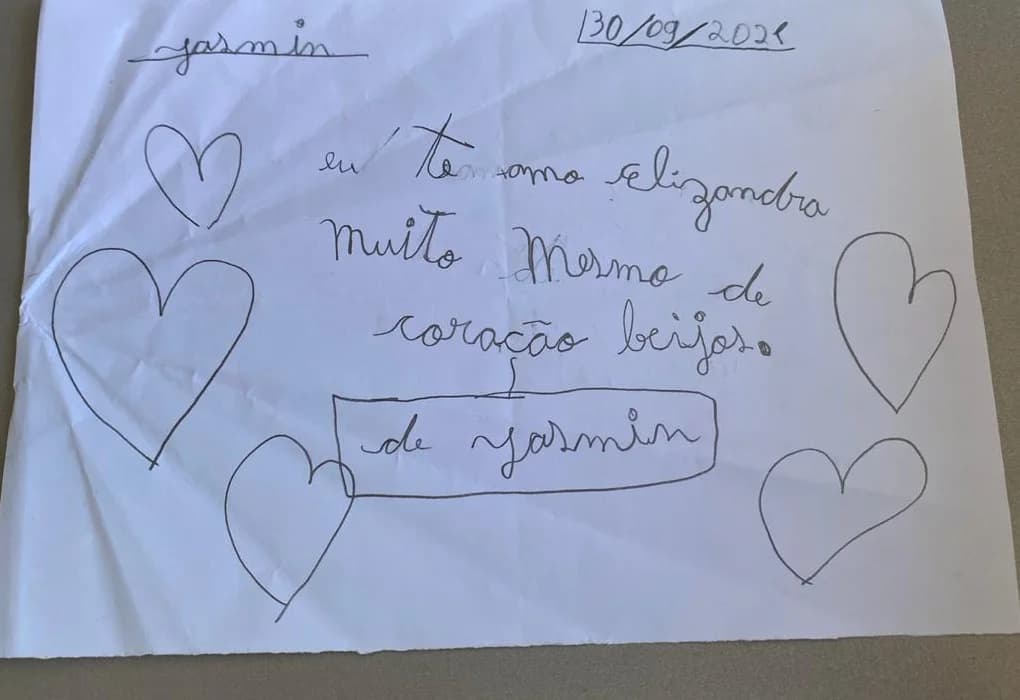 yasmin 30/09/2021
eu te amo Elizandra
muito mesmo de
coração beijos.
de yasmin